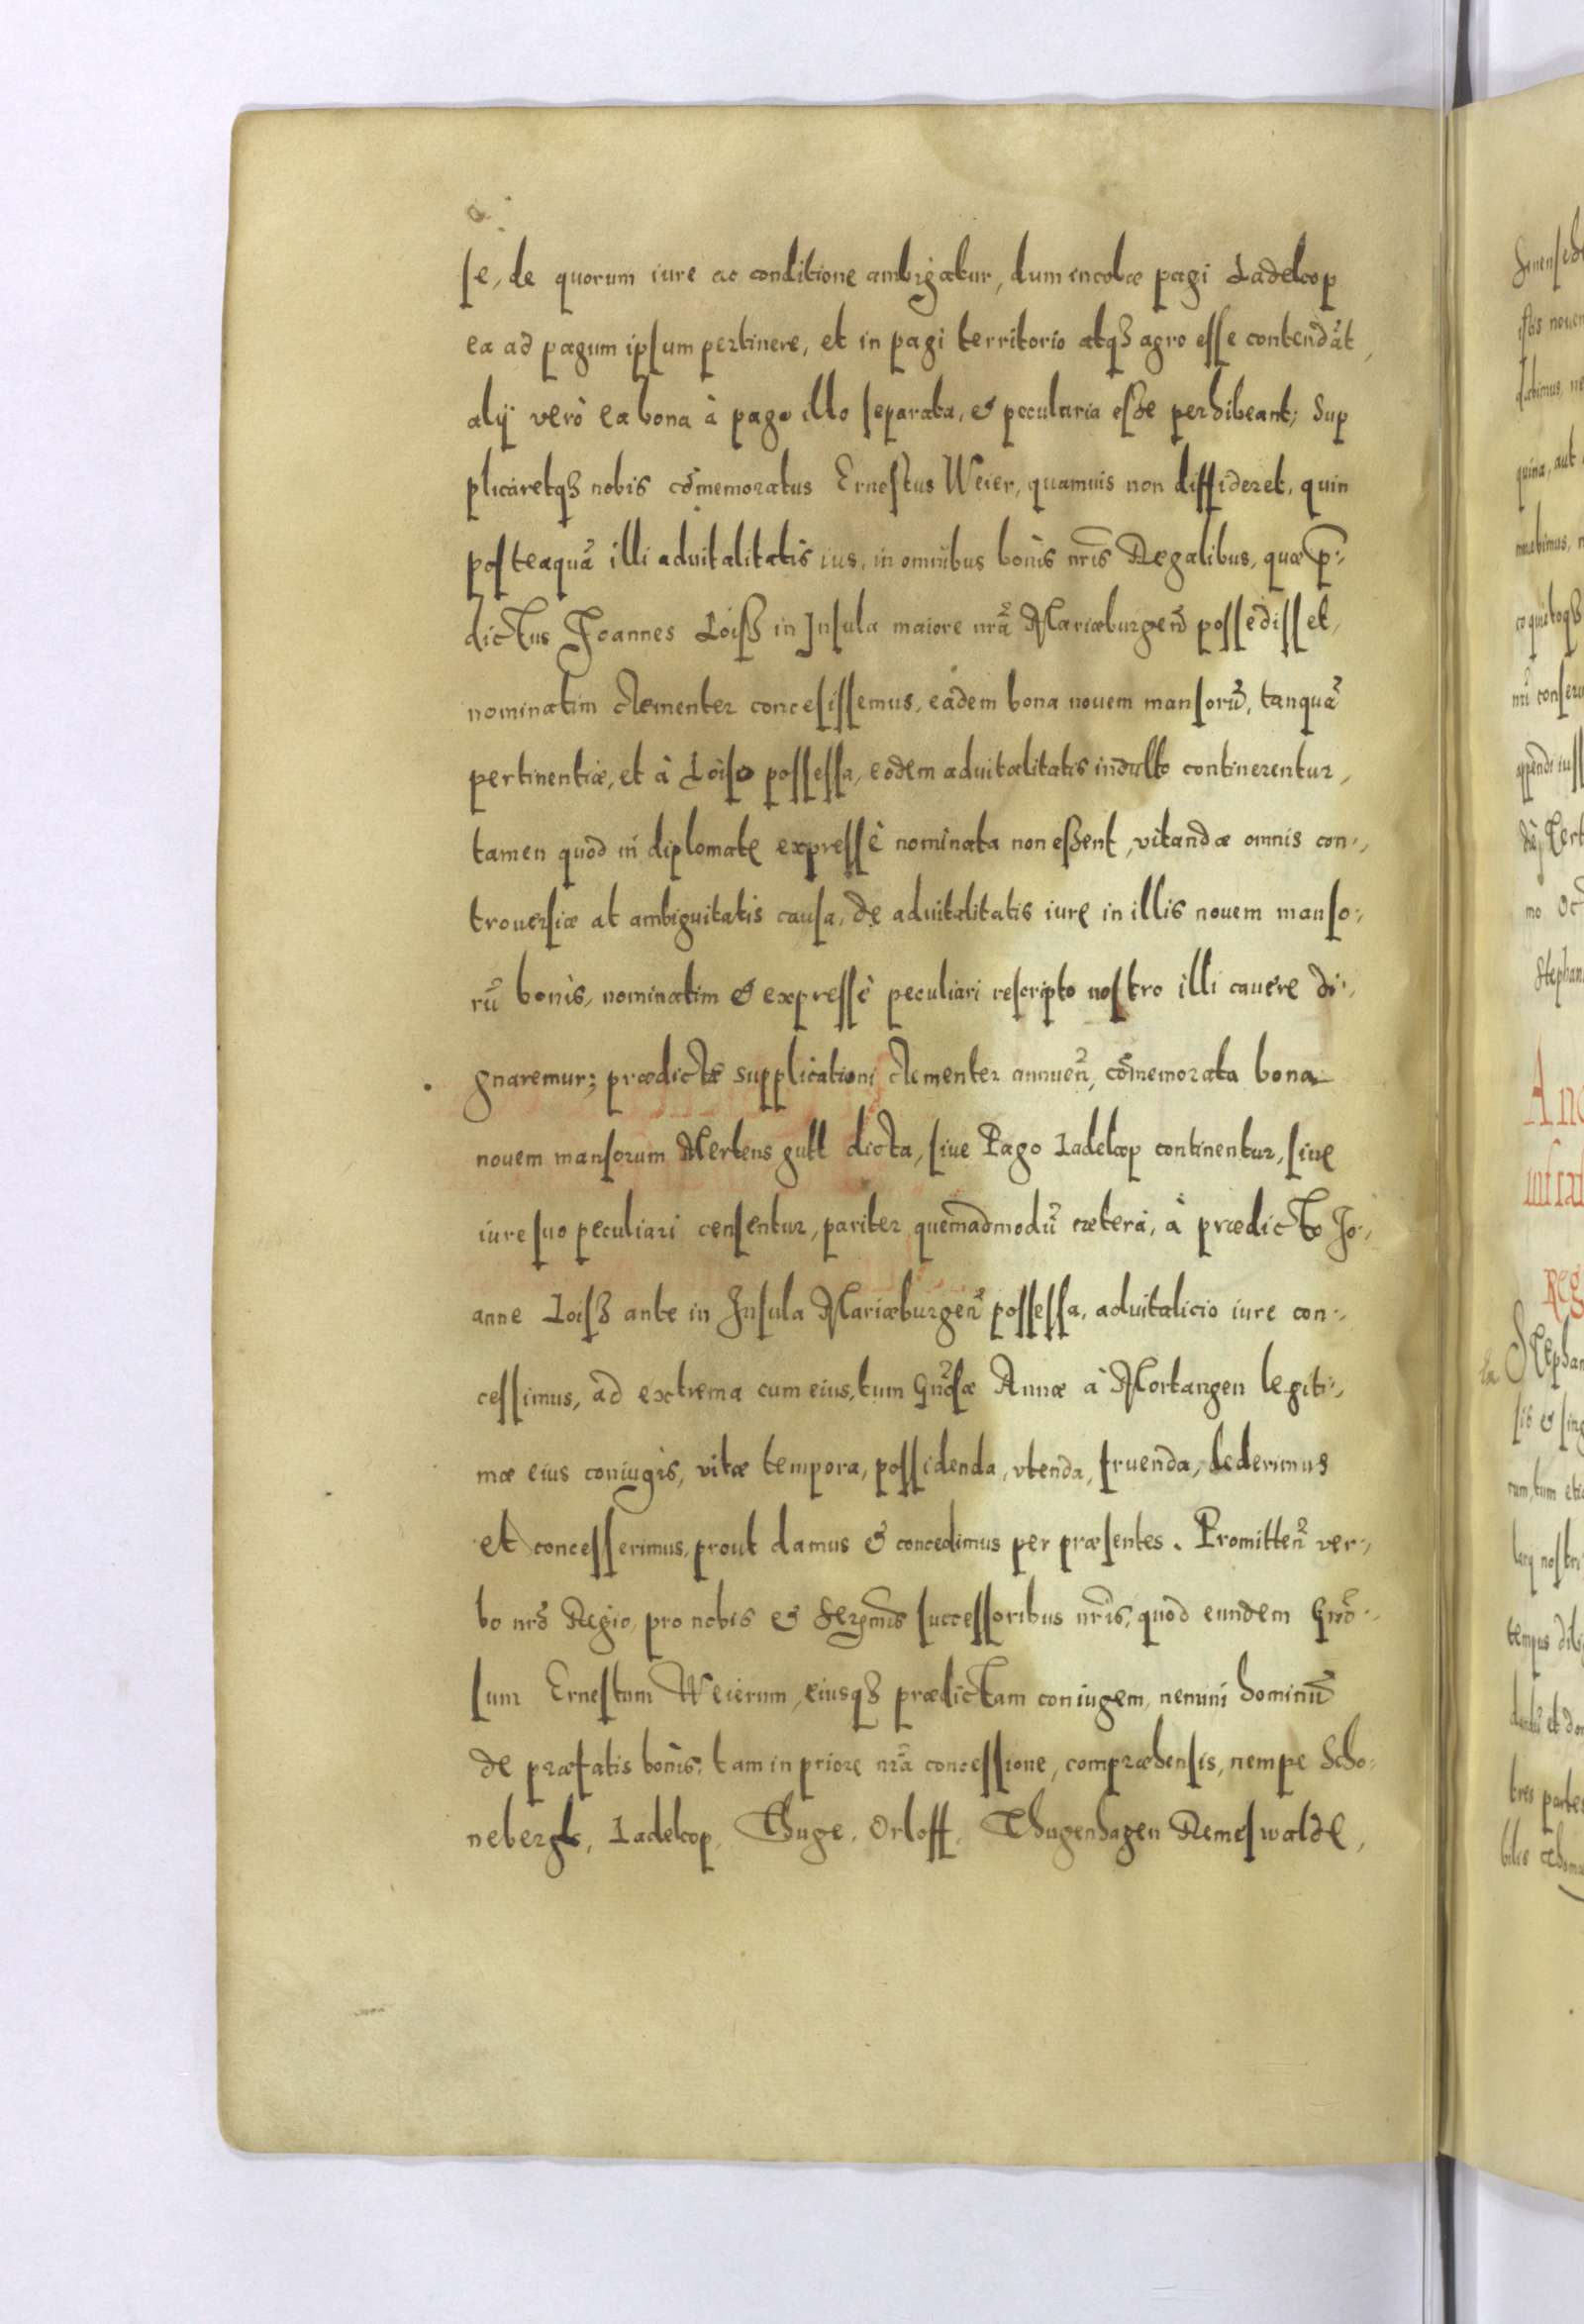 se, de quorum iure ac conditione ambigatur, dum incolæ pagi Ladelcop
ea ad pagum ipsum pertinere, et in pagi territorio atqꝫ agro esse contendāt,
alij verò ea bona à pago illo separata, & peculiaria eße perhibeant; Sup
plicaretqꝫ nobis cōmemoratus Ernestus Weier, quamuis non diffideret, quin
posteaquā illi aduitalitatis ius, in omnibus bonis nr̄is Regalibus, quæ p̄:
dictus Joannes Loiß in Insula maiore nr̄a Mariæburgen̄ possedisset,
nominatim clementer concesissemus, eadem bona nouem mansorū, tanquā
pertinentiæ, et à Loiso possessa, eodem aduitalitatis indulto continerentur,
tamen quod in diplomate expressè nominata non eßent, vitandæ omnis con:,
trouersiæ at ambiguitatis causa, de aduitalitatis iure in illis nouem manso:,
rū bonis, nominatim & expressè peculiari rescripto nostro illi cauere di:,
gnaremur; prædictæ supplicationi clementer annuen̄, cōmemorata bona
nouem mansorum Mertens gutt dicta, siue Pago Ladelcop continentur, siue
iure suo peculiari censentur, pariter quemadmodū cætera, à prædicto Jo:,
anne Loiß ante in Insula Mariæburgen̄ possessa, aduitalicio iure con:,
cessimus, ad extrema cum eius, tum Gn̄osæ Annæ à Mortangen legiti:,
mæ eius coniugis, vitæ tempora, possidenda, vtenda, fruenda, dederimus
et concesserimus, prout damus & concedimus per præsentes. Promitten̄ ver:,
bo nr̄o Regio, pro nobis & Serenmis successoribus nr̄is, quod eundem Gn̄o:,
sum Ernestum Weierum, eiusqꝫ prædictam coniugem, nemini hominū
de præfatis bonis, tam in priore nr̄a concessione, compræhensis, nempe Scho:
nebergk, Ladelcop, Thuge, Orloff, Thugenhagen Remeswalde,